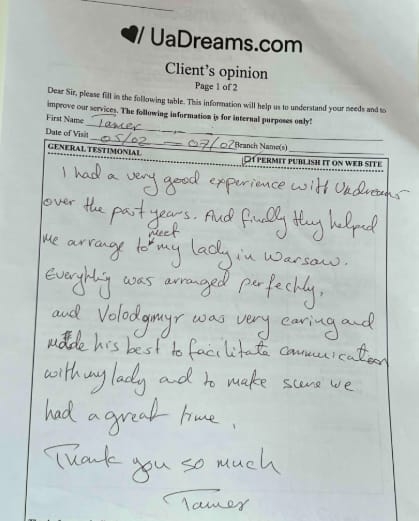 UaDreams.com
Client's opinion
Page 1 of 2
Dear Sir, please fill in the following table. This information will help us to understand your needs and to
improve our services. The following information is for internal purposes only!
First Name Tamer
Date of Visit 05/02 — 07/02 Branch Name(s)
GENERAL TESTIMONIAL PERMIT PUBLISH IT ON WEB SITE
I had a very good experience with Uadreams
over the past years. And finally they helped
me arrange to meet my lady in Warsaw.
Everything was arranged perfectly,
and Volodymyr was very caring and
made his best to facilitate communication
with my lady and to make sure we
had a great time.
Thank you so much
Tamer